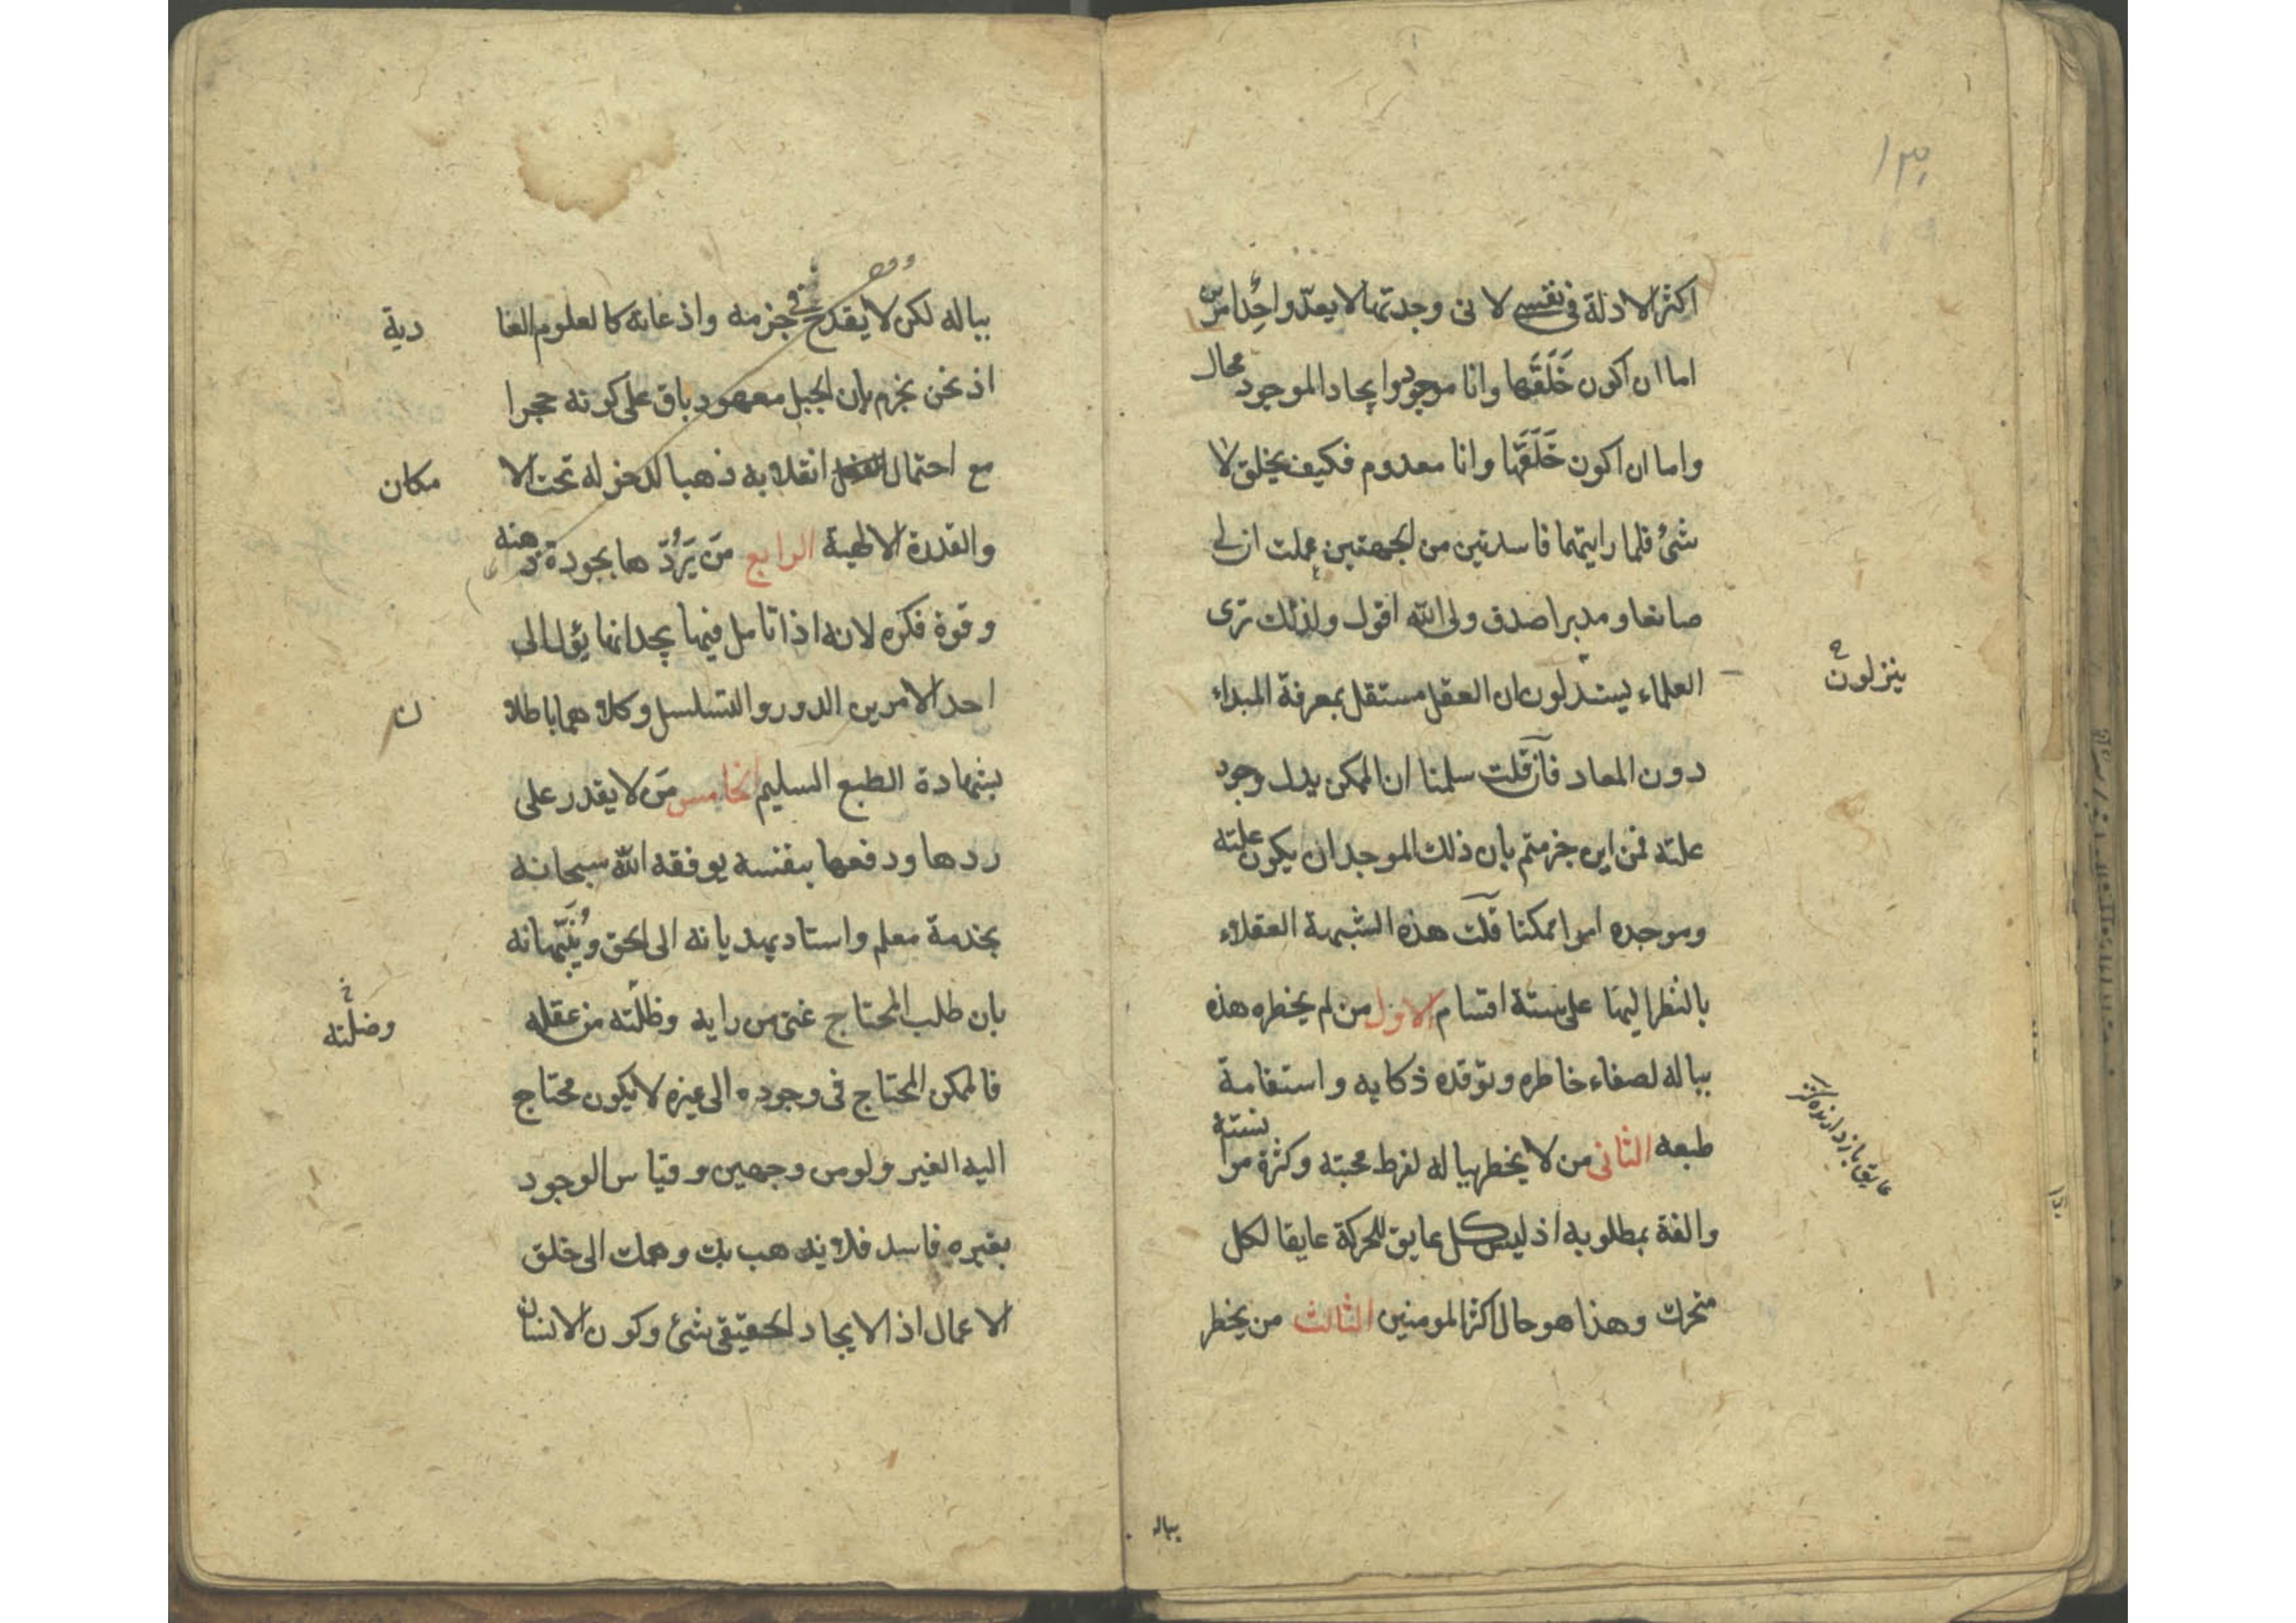 ١٣٠
اكثر الادلة فى نفسى لانى وجدتها لا يعدو احد امرين
اما ان اكون خَلَقَها وانا موجود وايجاد الموجود محال
واما ان اكون خَلَقَها وانا معدوم فكيف يخلق لا
شئ فلما رايتهما فاسدتين من الجهتين علمت ان لى
صانعا و مدبرا صدق ولى الله اقول ولذلك ترى
العلماء يستدلون ان العقل مستقل بمعرفة المبداء
ينزلون
دون المعاد فان قلت سلمنا ان الممكن يدل وجود
علته فمن اين جزمتم بان ذلك الموجد ان يكون علته
وموجده امرا ممكنا قلت هذه الشبهة العقلاء
بالنظر اليها على ستة اقسام الاول من لم يخطره هذه
بباله لصفاء خاطره وتوقده ذكايه واستقامة
طبعه الثانى من لا يخطر بباله لفرط محبته وكثرة موانسته
والفة بمطلوبه اذ ليس كل عايق للحركة عايقا لكل
متحرك وهذا هو حال اكثر المومنين الثالث من يخطر
بباله
بباله لكن لا يقدح فى جزمه واذعانه كالعلوم العا دية
اذ نحن نجزم بان الجبل معهود باق على كونه حجرا
مع احتمال انقلابه ذهبا لدخوله تحت الا مكان
والقدرة الالهية الرابع مَن يَرُدّ ها بجودة ذهنه
وقوة فكره لانه اذا تامل فيها يجد انها يؤل الى
احد الامرين الدور والتسلسل وكلاهما باطلا ن
بشهادة الطبع السليم الخامس مَن لا يقدر على
ردها ودفعها بنفسه يوفقه الله سبحانه
بخدمة معلم واستاد يهديانه الى الحق ويُنَبِّهانه
بان طلب المحتاج غنى من رايه وظلّته من عقله
وضلّته
فالممكن المحتاج فى وجوده الى غيره لا يكون محتاج
اليه الغير ولو من وجهين وقياس الوجود
بغيره فاسد فلا يذهب بك وهمك الى خلق
الاعمال اذ الايجاد الحقيقى شئ وكون الانسان